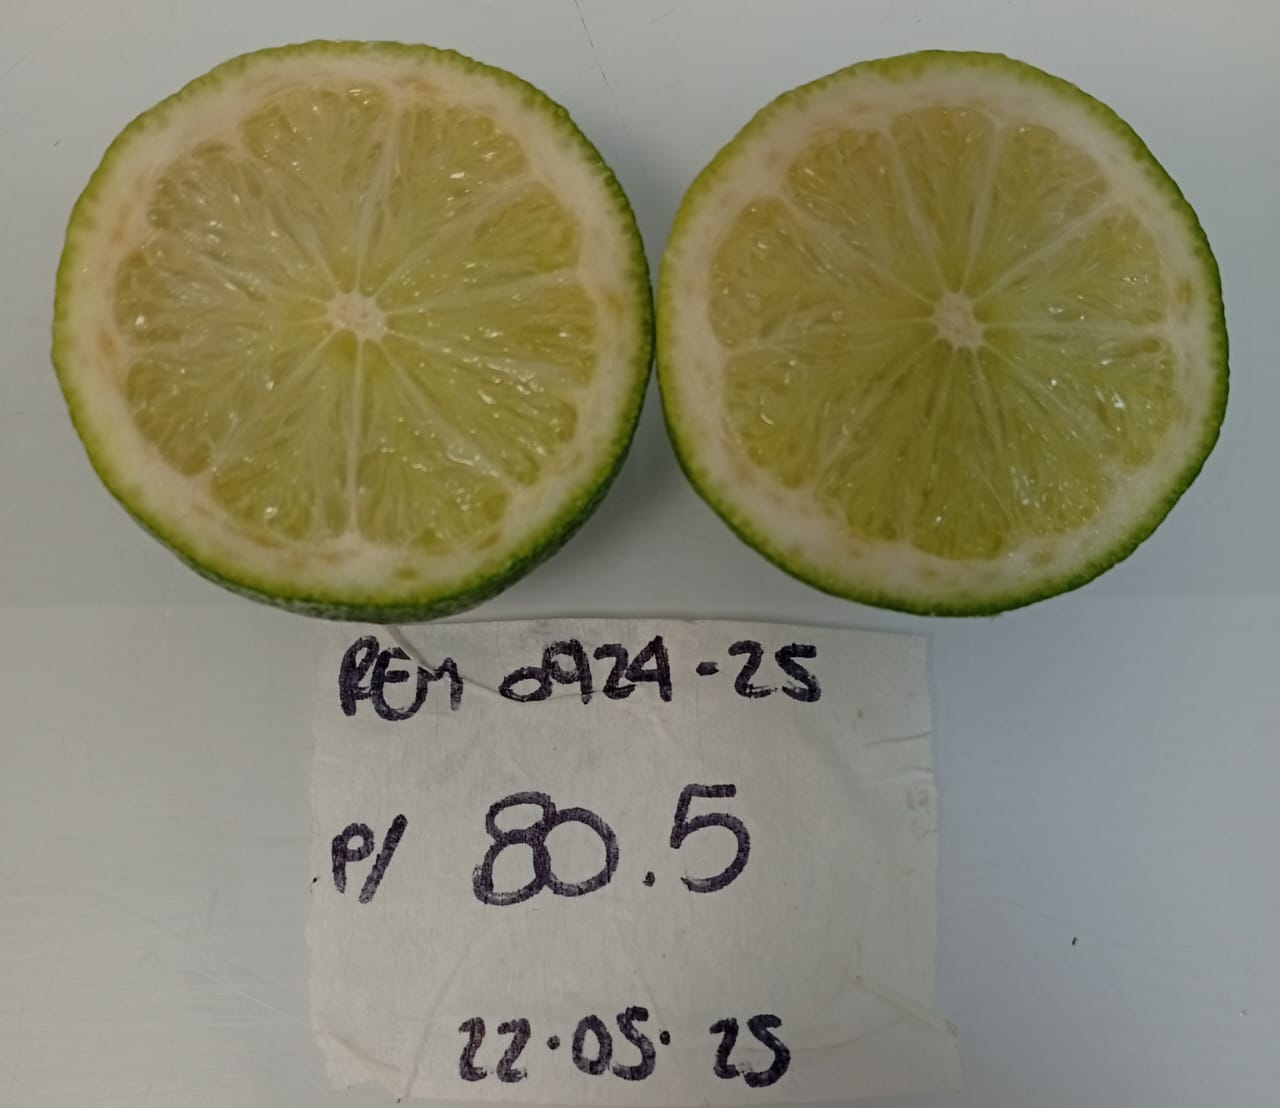 REM 0924-25
P/ 80.5
22.05.25